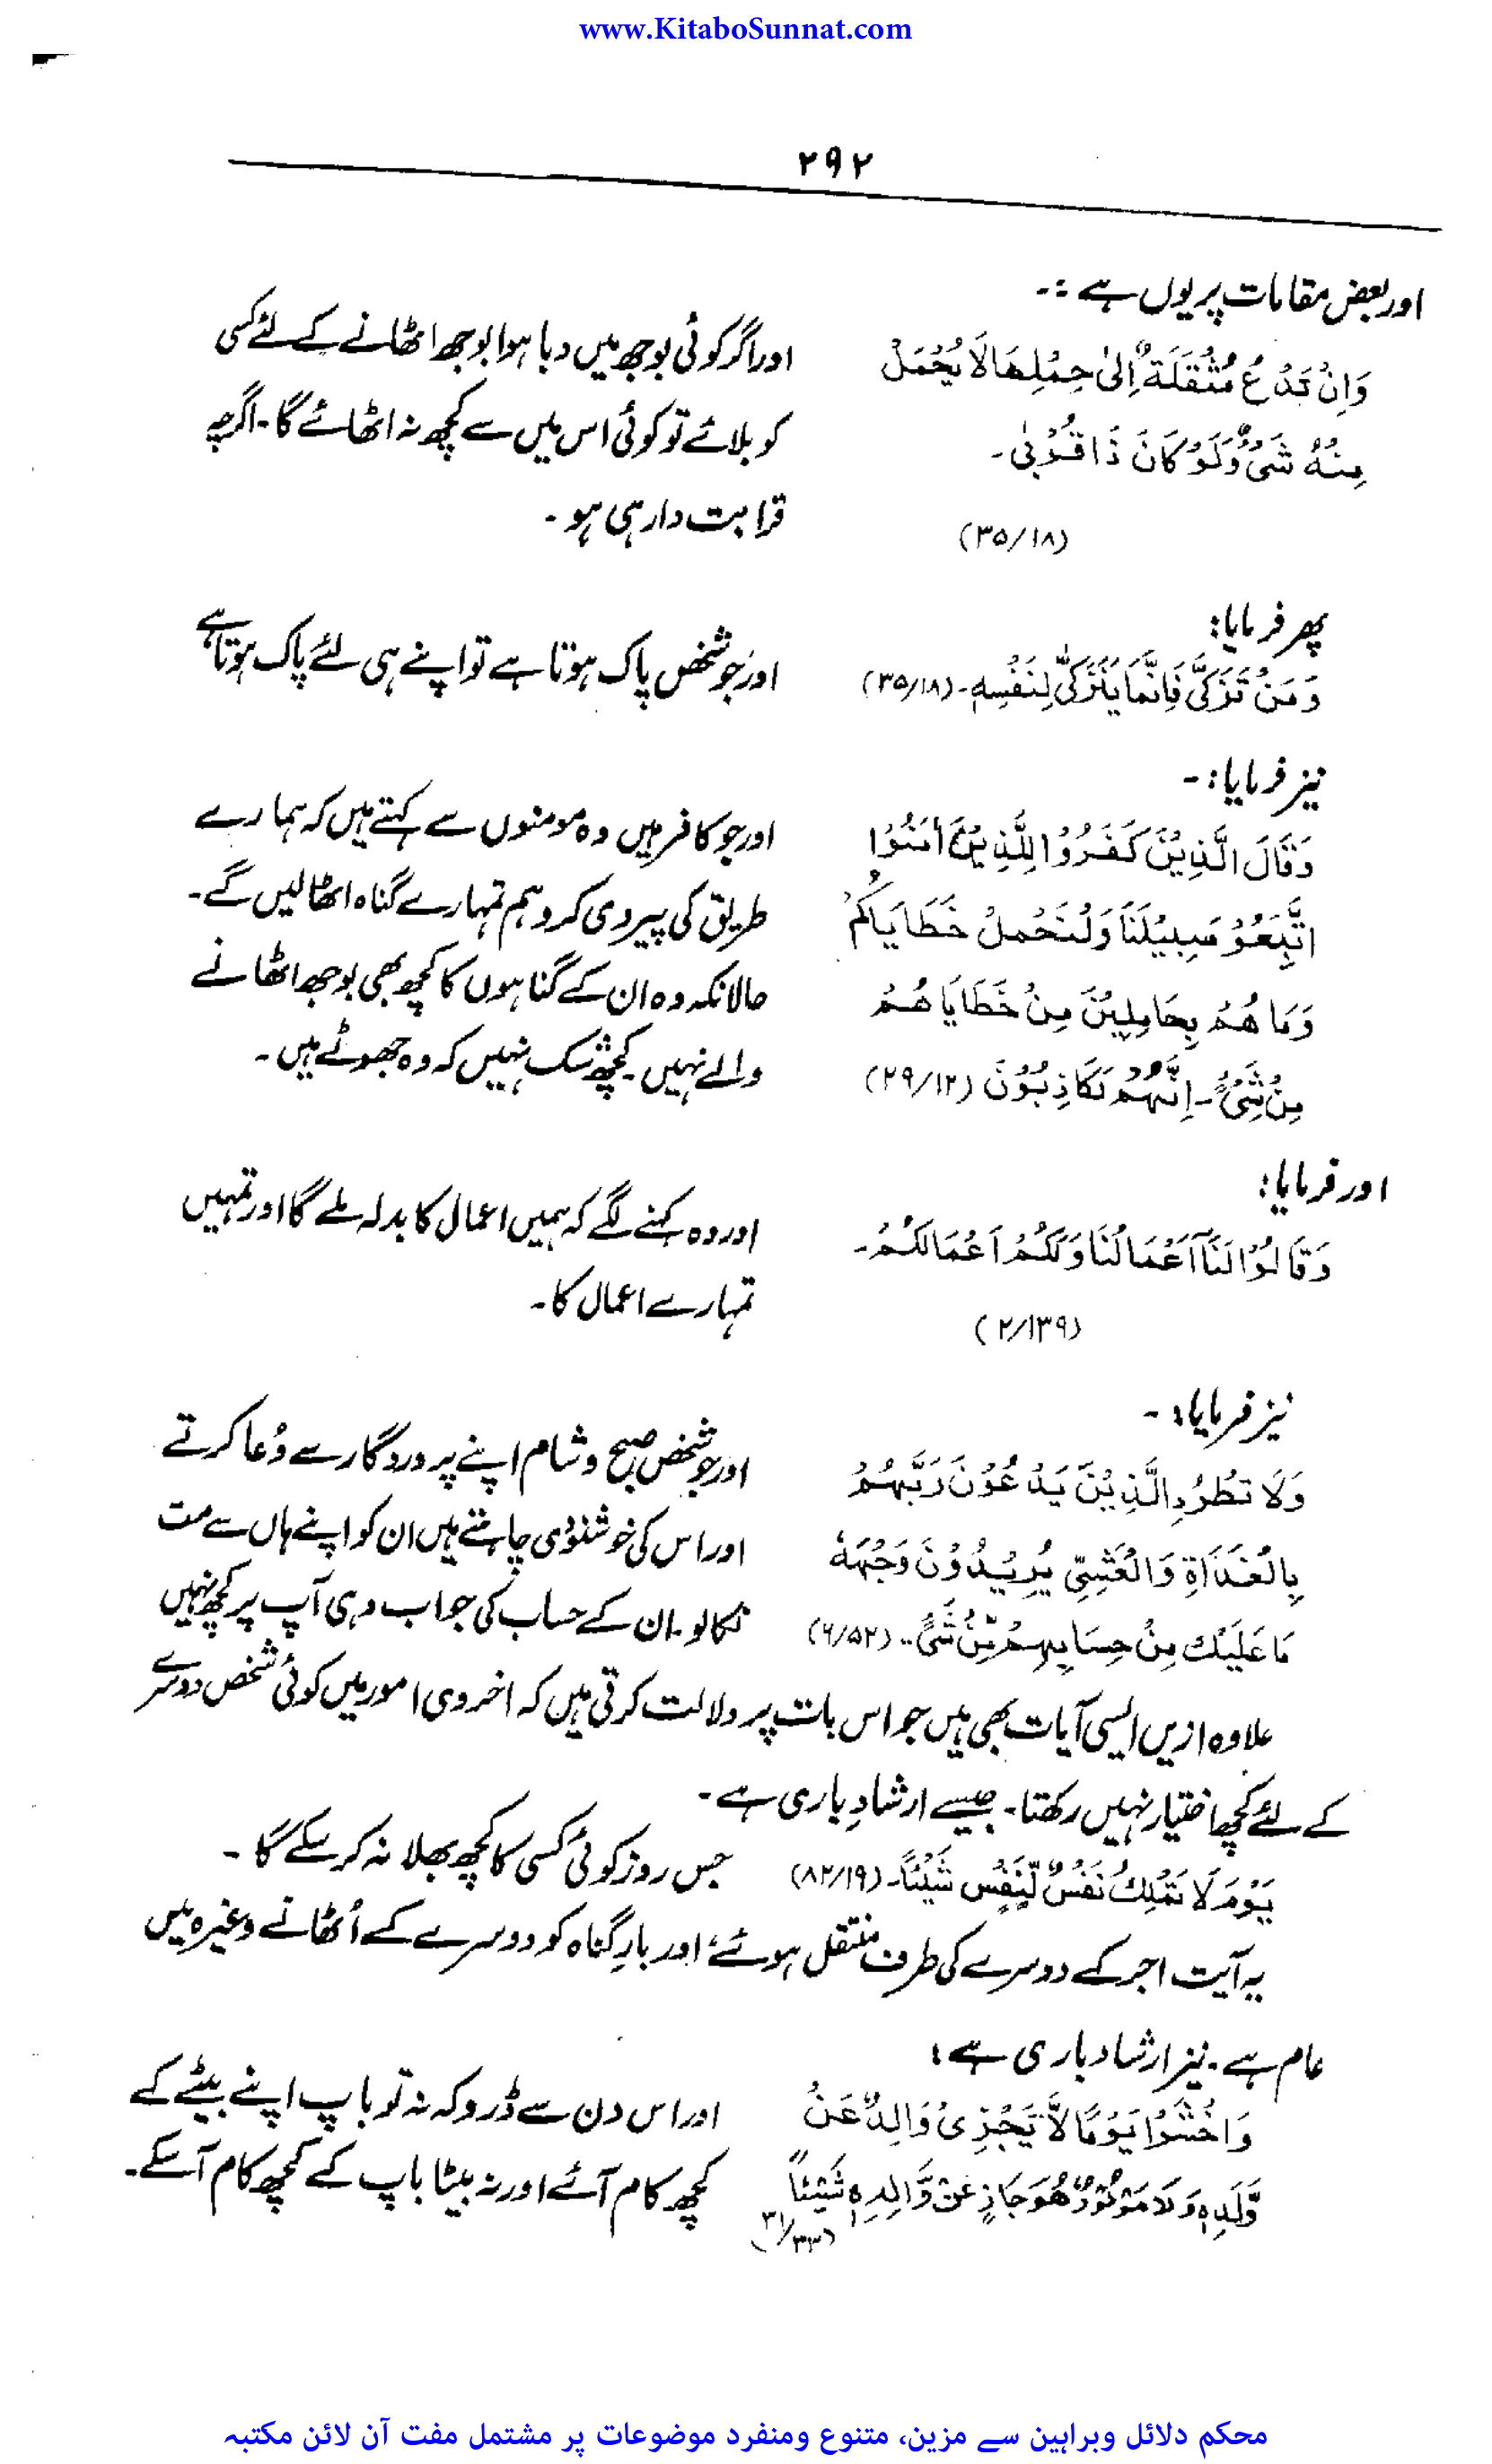 www.KitaboSunnat.com
۲۹۲
اور بعض مقامات پر یوں ہے :۔
وَاِنْ تَدْعُ مُثْقَلَةٌ اِلٰى حِمْلِهَا لَا يُحْمَلْ
مِنْهُ شَىْءٌ وَّلَوْ كَانَ ذَا قُرْبٰى ۔
(۳۵/۱۸)
اور اگر کوئی بوجھ میں دبا ہوا بوجھ اٹھانے کے لئے کسی
کو بلائے تو کوئی اس میں سے کچھ نہ اٹھائے گا۔ اگرچہ
قرابت دار ہی ہو ۔
پھر فرمایا:
وَمَنْ تَزَكّٰى فَاِنَّمَا يَتَزَكّٰى لِنَفْسِهٖ۔ (۳۵/۱۸)
اور جو شخص پاک ہوتا ہے تو اپنے ہی لئے پاک ہوتا ہے
نیز فرمایا: ۔
وَقَالَ الَّذِيْنَ كَفَرُوْا لِلَّذِيْنَ اٰمَنُوْا
اتَّبِعُوْ سَبِيْلَنَا وَلْنَحْمِلْ خَطَايَاكُمْ
وَمَا هُمْ بِحَامِلِيْنَ مِنْ خَطَايَا هُمْ
مِنْ شَىْءٍ۔ اِنَّهُمْ لَكَاذِبُوْنَ (۲۹/۱۲)
اور جو کافر ہیں وہ مومنوں سے کہتے ہیں کہ ہمارے
طریق کی پیروی کرو ہم تمہارے گناہ اٹھا لیں گے۔
حالانکہ وہ ان کے گناہوں کا کچھ بھی بوجھ اٹھانے
والے نہیں ۔ کچھ شک نہیں کہ وہ جھوٹے ہیں ۔
اور فرمایا:
وَقَالُوْا لَنَآ اَعْمَالُنَا وَلَكُمْ اَعْمَالُكُمْ۔
(۲/۱۳۹)
اور وہ کہنے لگے کہ ہمیں اعمال کا بدلہ ملے گا اور تمہیں
تمہارے اعمال کا ۔
نیز فرمایا: ۔
وَلَا تَطْرُدِ الَّذِيْنَ يَدْعُوْنَ رَبَّهُمْ
بِالْغَدَاةِ وَالْعَشِىِّ يُرِيْدُوْنَ وَجْهَهٗ
مَا عَلَيْكَ مِنْ حِسَابِهِمْ مِّنْ شَىْءٍ ۔ (۶/۵۲)
اور جو شخص صبح و شام اپنے پروردگار سے دُعا کرتے
اور اس کی خوشنودی چاہتے ہیں ان کو اپنے ہاں سے مت
نکالو۔ ان کے حساب کی جواب دہی آپ پر کچھ نہیں
علاوہ ازیں ایسی آیات بھی ہیں جو اس بات پر دلالت کرتی ہیں کہ اخروی امور میں کوئی شخص دوسرے
کے لئے کچھ اختیار نہیں رکھتا۔ جیسے ارشادِ باری ہے ۔
يَوْمَ لَا تَمْلِكُ نَفْسٌ لِّنَفْسٍ شَيْئًا۔ (۸۲/۱۹)
جس روز کوئی کسی کا کچھ بھلا نہ کر سکے گا ۔
یہ آیت اجر کے دوسرے کی طرف منتقل ہوئے اور بارِ گناہ کو دوسرے کے اُٹھانے وغیرہ میں
عام ہے ۔ نیز ارشاد باری ہے :
وَاخْشَوْا يَوْمًا لَّا يَجْزِىْ وَالِدٌ عَنْ
وَّلَدِهٖ وَلَا مَوْلُوْدٌ هُوَ جَازٍ عَنْ وَّالِدِهٖ شَيْئًا
(۳۱/۳۳)
اور اس دن سے ڈرو کہ نہ تو باپ اپنے بیٹے کے
کچھ کام آئے اور نہ بیٹا باپ کے کچھ کام آ سکے۔
محکم دلائل وبراہین سے مزین، متنوع ومنفرد موضوعات پر مشتمل مفت آن لائن مکتبہ